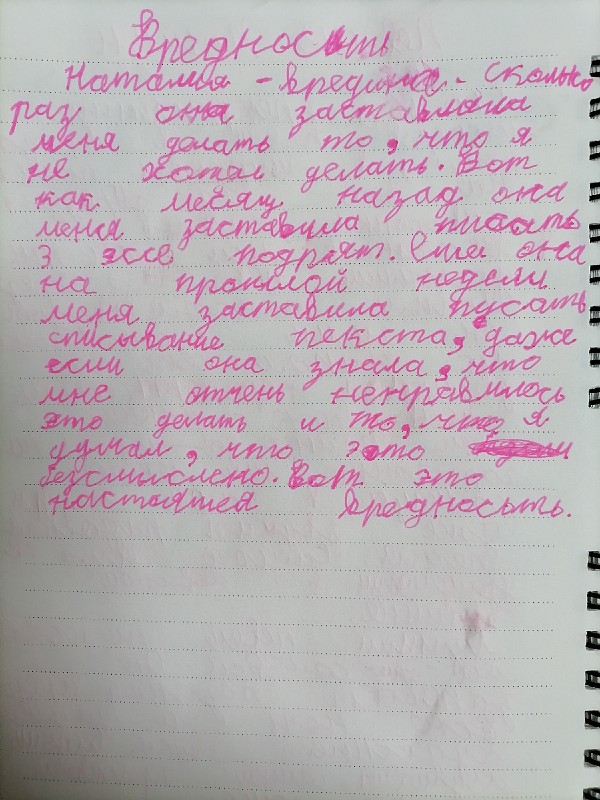 Вредность
Наталья - вредина. Сколько
раз она заставляла
меня делать то, что я
не хотел делать. Вот
как месяц назад она
меня заставила писать
3 эссе подрят. Ещё она
на прошлой недели
меня заставила писать
списывание текста, даже
если она знала, что
мне отчень ненравилось
это делать и то, что я
думал, что это
безсмислено. Вот это
настоятея вредность.